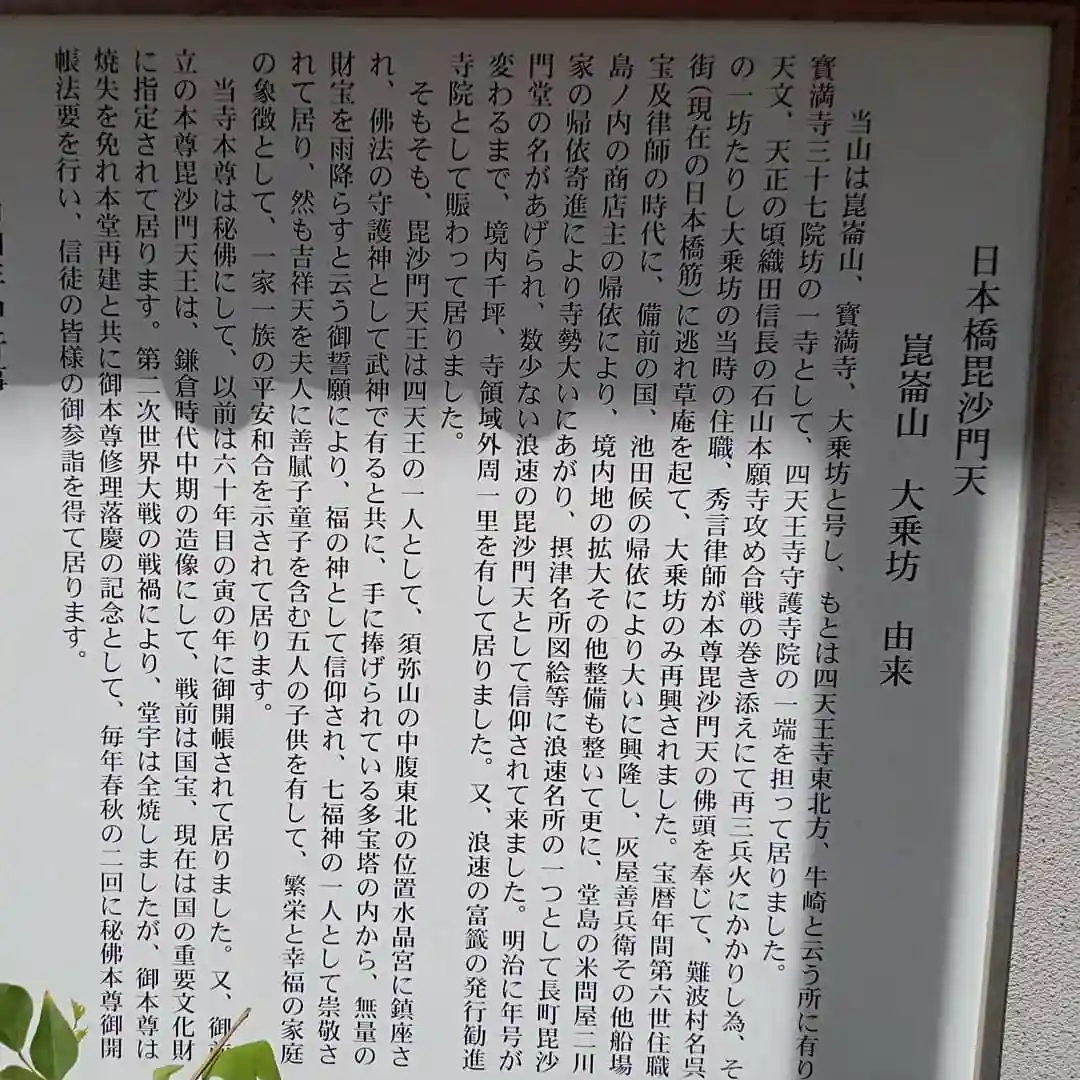 日本橋毘沙門天
崑崙山 大乗坊 由来
当山は崑崙山、寳満寺、大乗坊と号し、もとは四天王寺東北方、牛崎と云う所に有り
寳満寺三十七院坊の一寺として、四天王寺守護寺院の一端を担って居りました。
天文、天正の頃織田信長の石山本願寺攻め合戦の巻き添えにて再三兵火にかかりし為、そ
の一坊たりし大乗坊の当時の住職、秀言律師が本尊毘沙門天の佛頭を奉じて、難波村名呉
街(現在の日本橋筋)に逃れ草庵を起て、大乗坊のみ再興されました。宝暦年間第六世住職
宝及律師の時代に、備前の国、池田候の帰依により大いに興隆し、灰屋善兵衛その他船場
島ノ内の商店主の帰依により、境内地の拡大その他整備も整いて更に、堂島の米問屋二川
家の帰依寄進により寺勢大いにあがり、摂津名所図絵等に浪速名所の一つとして長町毘沙
門堂の名があげられ、数少ない浪速の毘沙門天として信仰されて来ました。明治に年号が
変わるまで、境内千坪、寺領域外周一里を有して居りました。又、浪速の富籤の発行勧進
寺院として賑わって居りました。
そもそも、毘沙門天王は四天王の一人として、須弥山の中腹東北の位置水晶宮に鎮座さ
れ、佛法の守護神として武神で有ると共に、手に捧げられている多宝塔の内から、無量の
財宝を雨降らすと云う御誓願により、福の神として信仰され、七福神の一人として崇敬さ
れて居り、然も吉祥天を夫人に善膩子童子を含む五人の子供を有して、繁栄と幸福の家庭
の象徴として、一家一族の平安和合を示されて居ります。
当寺本尊は秘佛にして、以前は六十年目の寅の年に御開帳されて居りました。又、御
立の本尊毘沙門天王は、鎌倉時代中期の造像にして、戦前は国宝、現在は国の重要文化財
に指定されて居ります。第二次世界大戦の戦禍により、堂宇は全焼しましたが、御本尊は
焼失を免れ本堂再建と共に御本尊修理落慶の記念として、毎年春秋の二回に秘佛本尊御開
帳法要を行い、信徒の皆様の御参詣を得て居ります。